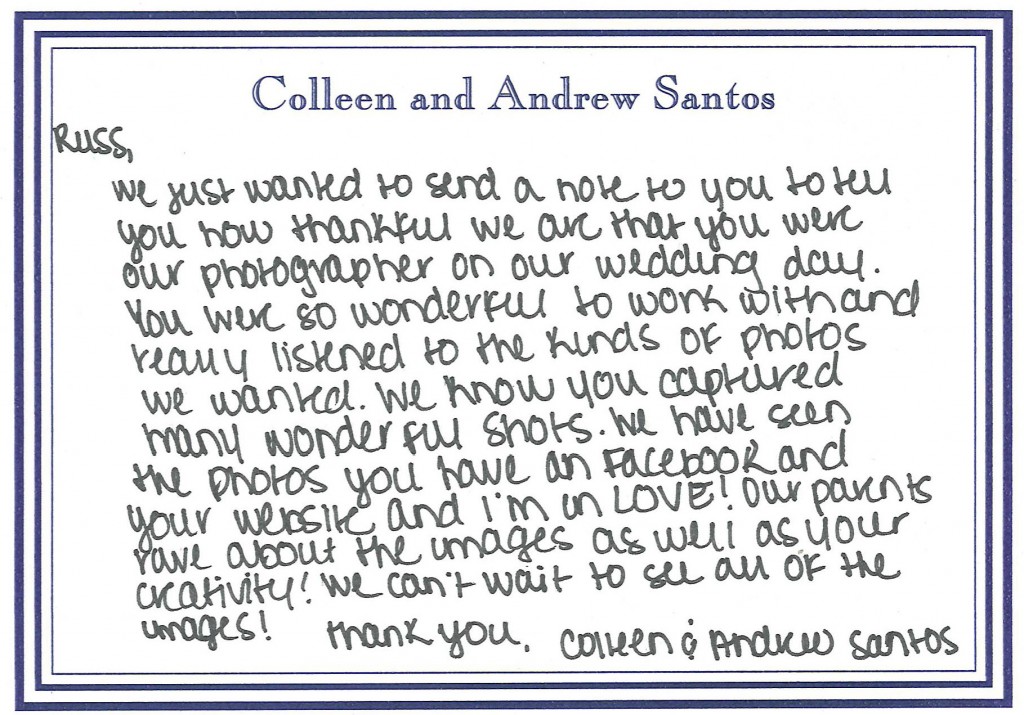 Colleen and Andrew Santos
Russ,
We just wanted to send a note to you to tell
you how thankful we are that you were
our photographer on our wedding day.
You were so wonderful to work with and
really listened to the kinds of photos
we wanted. We know you captured
many wonderful shots. We have seen
the photos you have on Facebook and
your website and I'm in LOVE! Our parents
rave about the images as well as your
creativity! We can't wait to see all of the
images! Thank you, Colleen & Andrew Santos